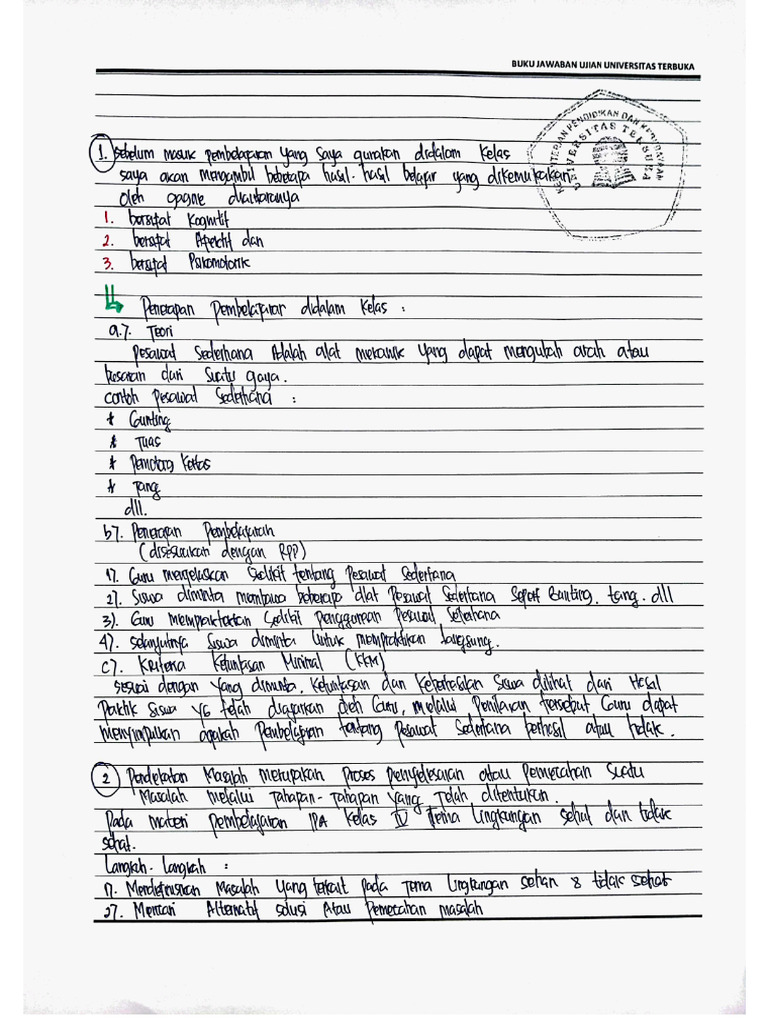 BUKU JAWABAN UJIAN UNIVERSITAS TERBUKA
KEMENTERIAN PENDIDIKAN DAN KEBUDAYAAN
UNIVERSITAS TERBUKA
1. Sebelum masuk pembelajaran yang saya gunakan didalam kelas
saya akan mengambil beberapa hasil-hasil belajar yang dikemukakan
oleh gagne diantaranya
1. bersifat Kognitif
2. bersifat Apektif dan
3. bersifat Psikomotorik
Penerapan Pembelajaran didalam kelas :
a.7. Teori
Pesawat Sederhana Adalah alat mekanik yang dapat mengubah arah atau
besaran dari Suatu gaya.
contoh Pesawat Sederhana :
* Gunting
* Tuas
* Pemotong Kertas
* Tang
dll.
b7. Penerapan Pembelajaran
(disesuaikan dengan RPP)
1). Guru menjelaskan Sedikit tentang Pesawat Sederhana
2). Siswa diminta membawa beberapa alat Pesawat Sederhana Seperti Gunting. tang. dll
3). Guru mempraktekan Sedikit penggunaan Pesawat Sederhana
4). Selanjutnya Siswa diminta Untuk mempraktikan langsung.
c7. Kriteria Ketuntasan Minimal (KKM)
sesuai dengan yang diminta. Ketuntasan dan Keberhasilan Siswa dilihat dari Hasil
Praktik Siswa YG telah diajarkan oleh Guru, melalui Penilaian tersebut Guru dapat
menyimpulkan apakah Pembelajaran tentang Pesawat Sederhana berhasil atau tidak.
2 Pendekatan Masalah merupakan Proses penyelesaian atau Pemecahan Suatu
Masalah melalui Tahapan-Tahapan yang Telah ditentukan.
Pada materi pembelajaran IPA Kelas IV Tema Lingkungan sehat dan tidak
sehat.
Langkah-Langkah :
1). Mendefinisikan Masalah Yang terkait Pada Tema Lingkungan sehat & tidak sehat
2). Mencari Alternatif solusi Atau Pemecahan masalah